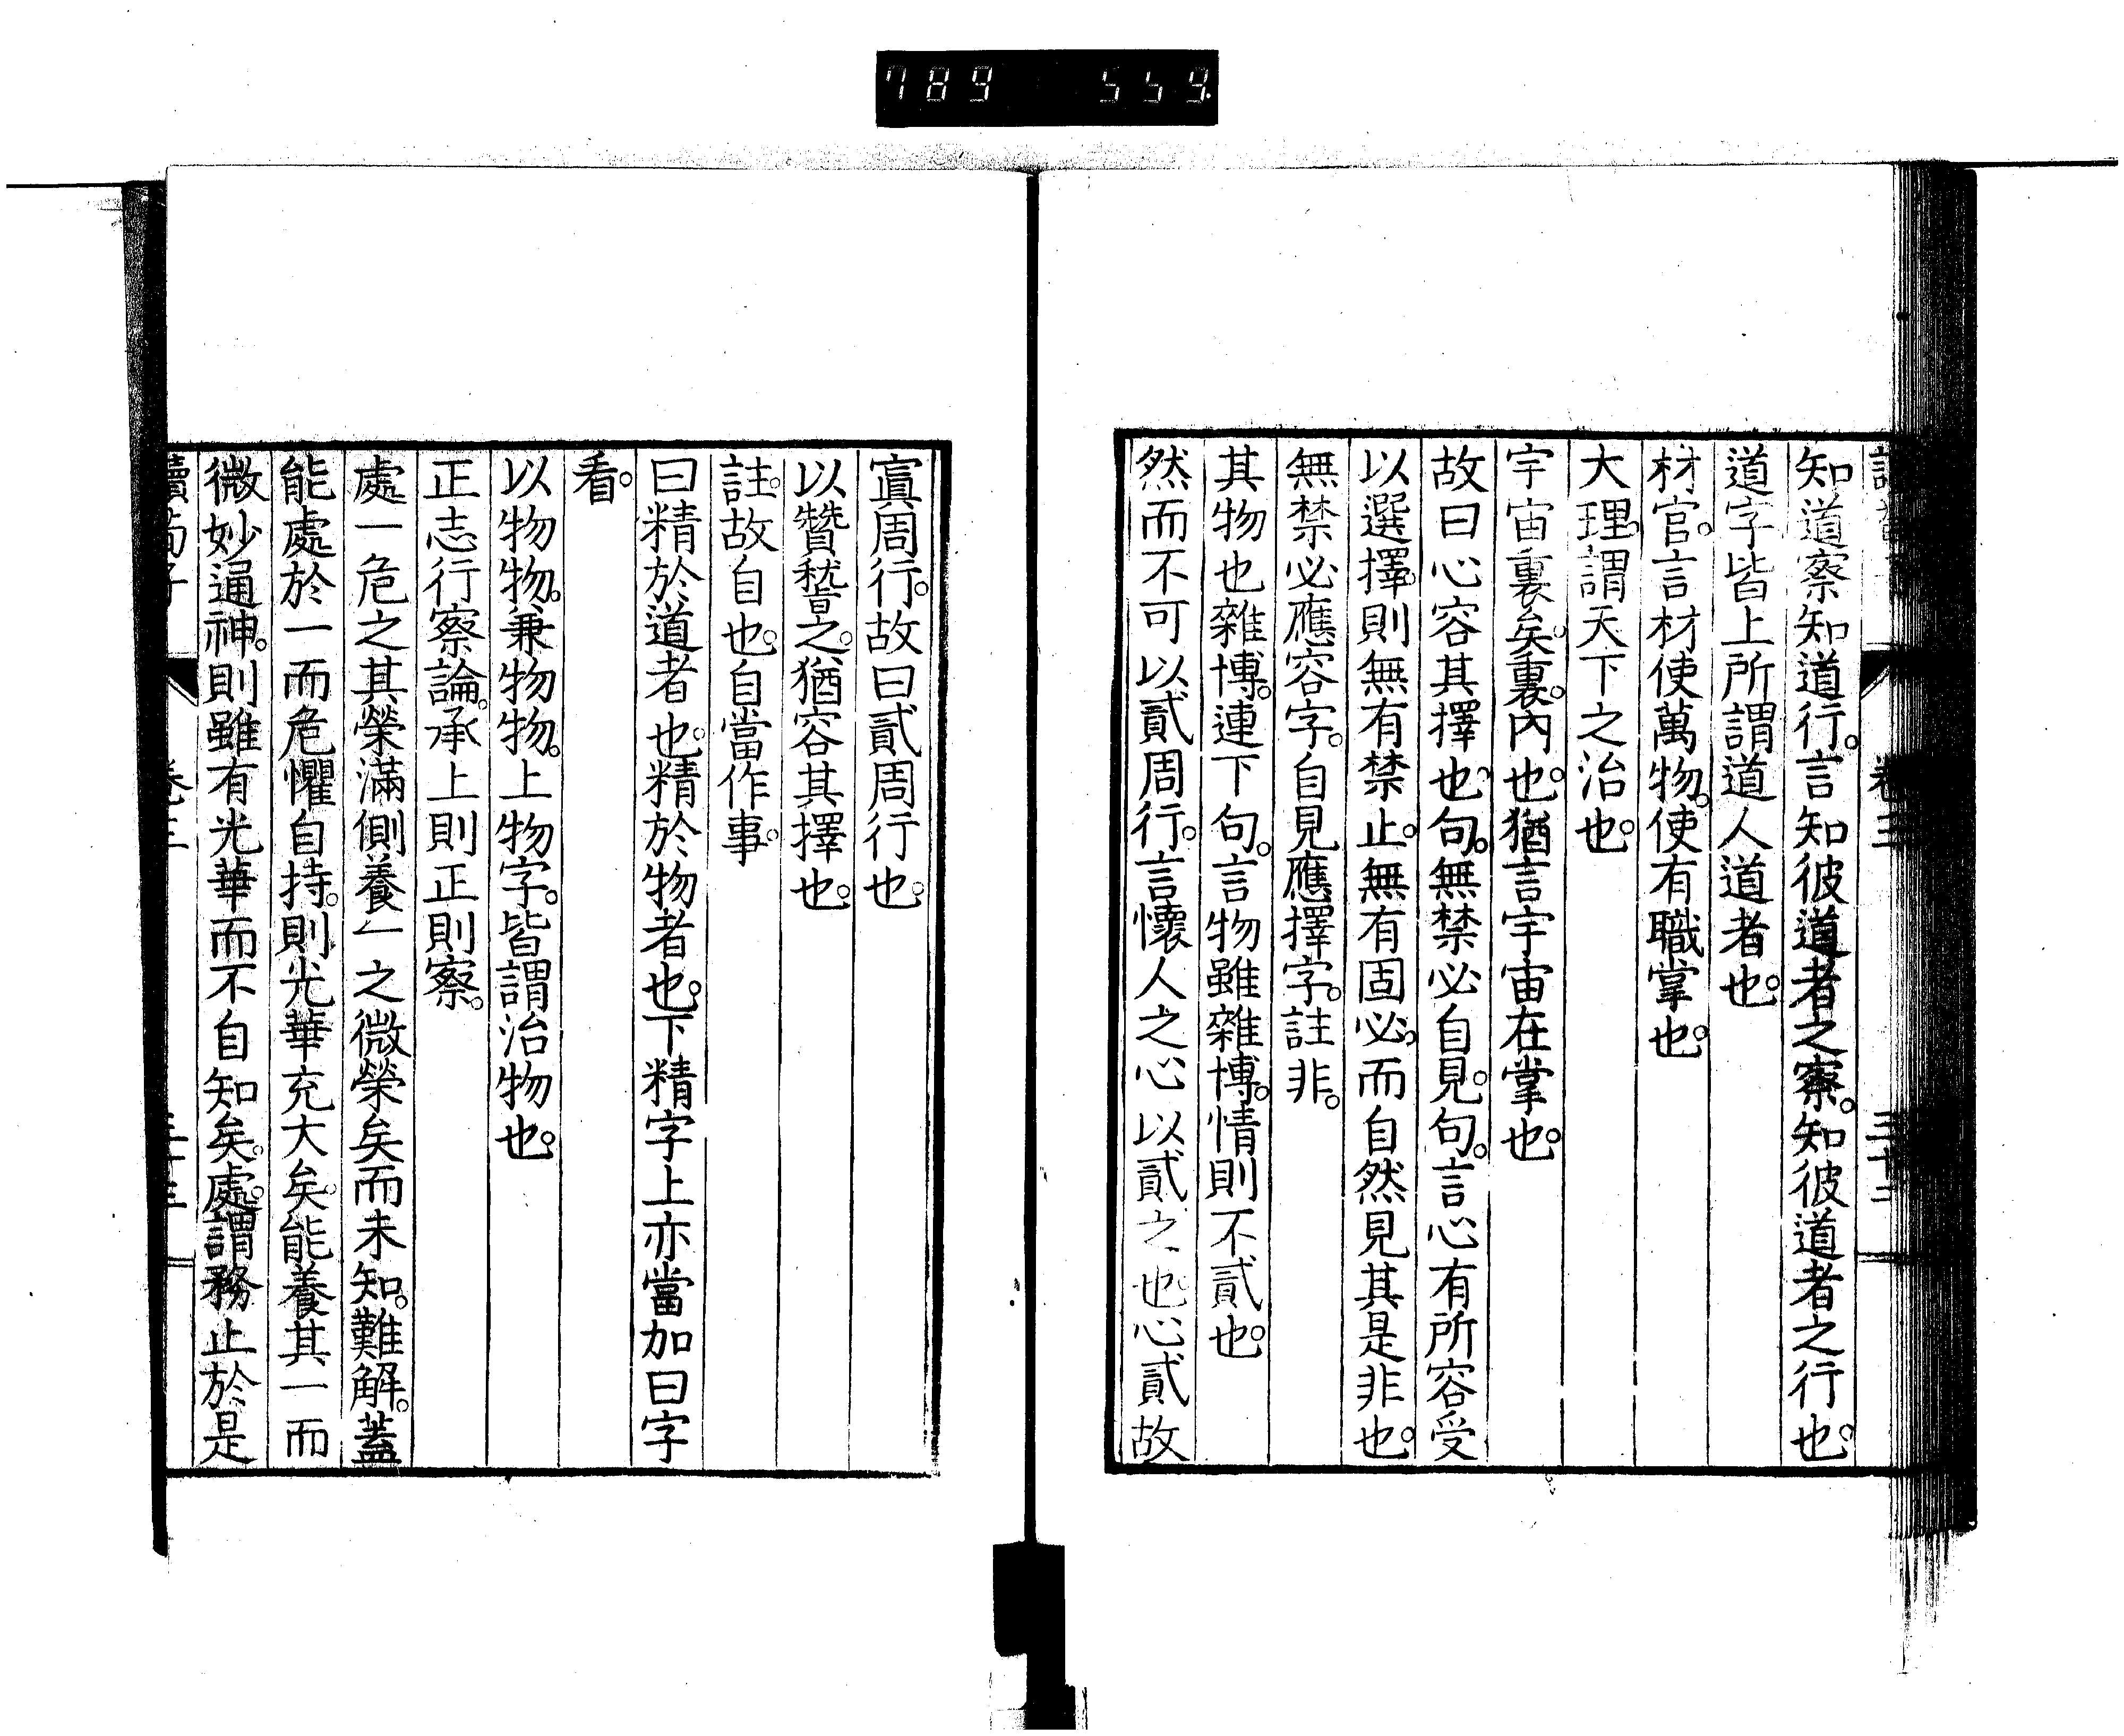 789 559
卷三 三十二
知道察知道行。言知彼道者之察。知彼道者之行也。
道字皆上所謂道人道者也。
材官。言材使萬物。使有職掌也。
大理。謂天下之治也。
宇宙裏矣。裏。內也。猶言宇宙在掌也。
故曰心容其擇也。句。無禁必自見。句。言心有所容受
以選擇。則無有禁止。無有固必。而自然見其是非也。
無禁必應容字。自見應擇字。註非。
其物也雜博。連下句。言物雖雜博。情則不貳也。
然而不可以貳周行。言懷人之心以貳之也。心貳故
寘周行。故曰貳周行也。
以贊稽之。猶容其擇也。
註。故自也。自當作事。
曰精於道者也。精於物者也。下精字上亦當加曰字
看。
以物物。兼物物。上物字。皆謂治物也。
正志行察論。承上則正則察。
處一危之其榮滿側養一之微榮矣而未知。難解。蓋
能處於一而危懼自持。則光華充大矣。能養其一而
微妙通神。則雖有光華而不自知矣。處。謂務止於是
讀荀子 卷三 三十三